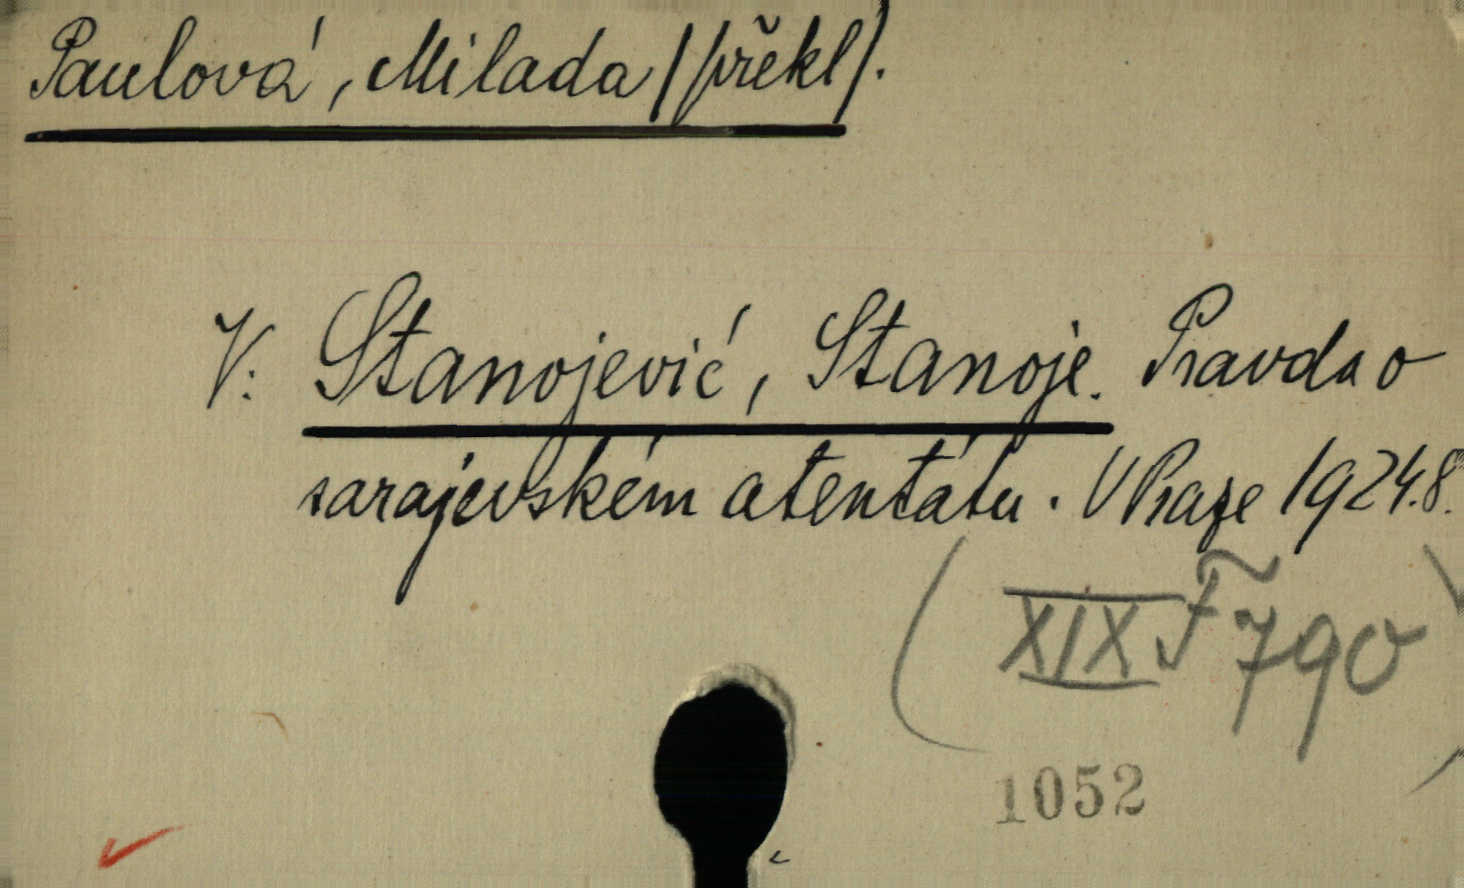 Paulová, Milada /překl/.
V: Stanojević, Stanoje. Pravda o
sarajevském atentátu. V Praze 1924. 8°.
(XIX F 790)
1052